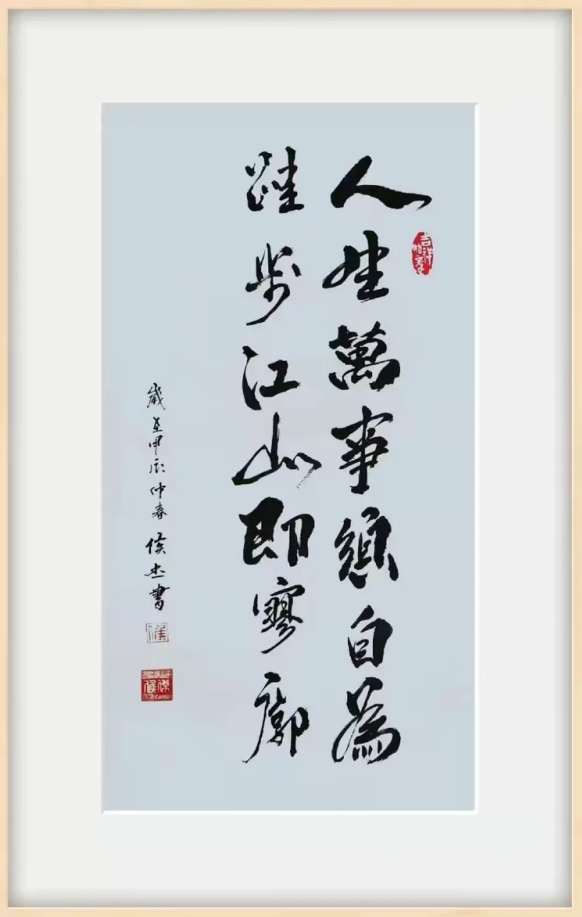 人生萬事須自為
跬步江山即寥廓
歲在甲辰仲春 侯杰書